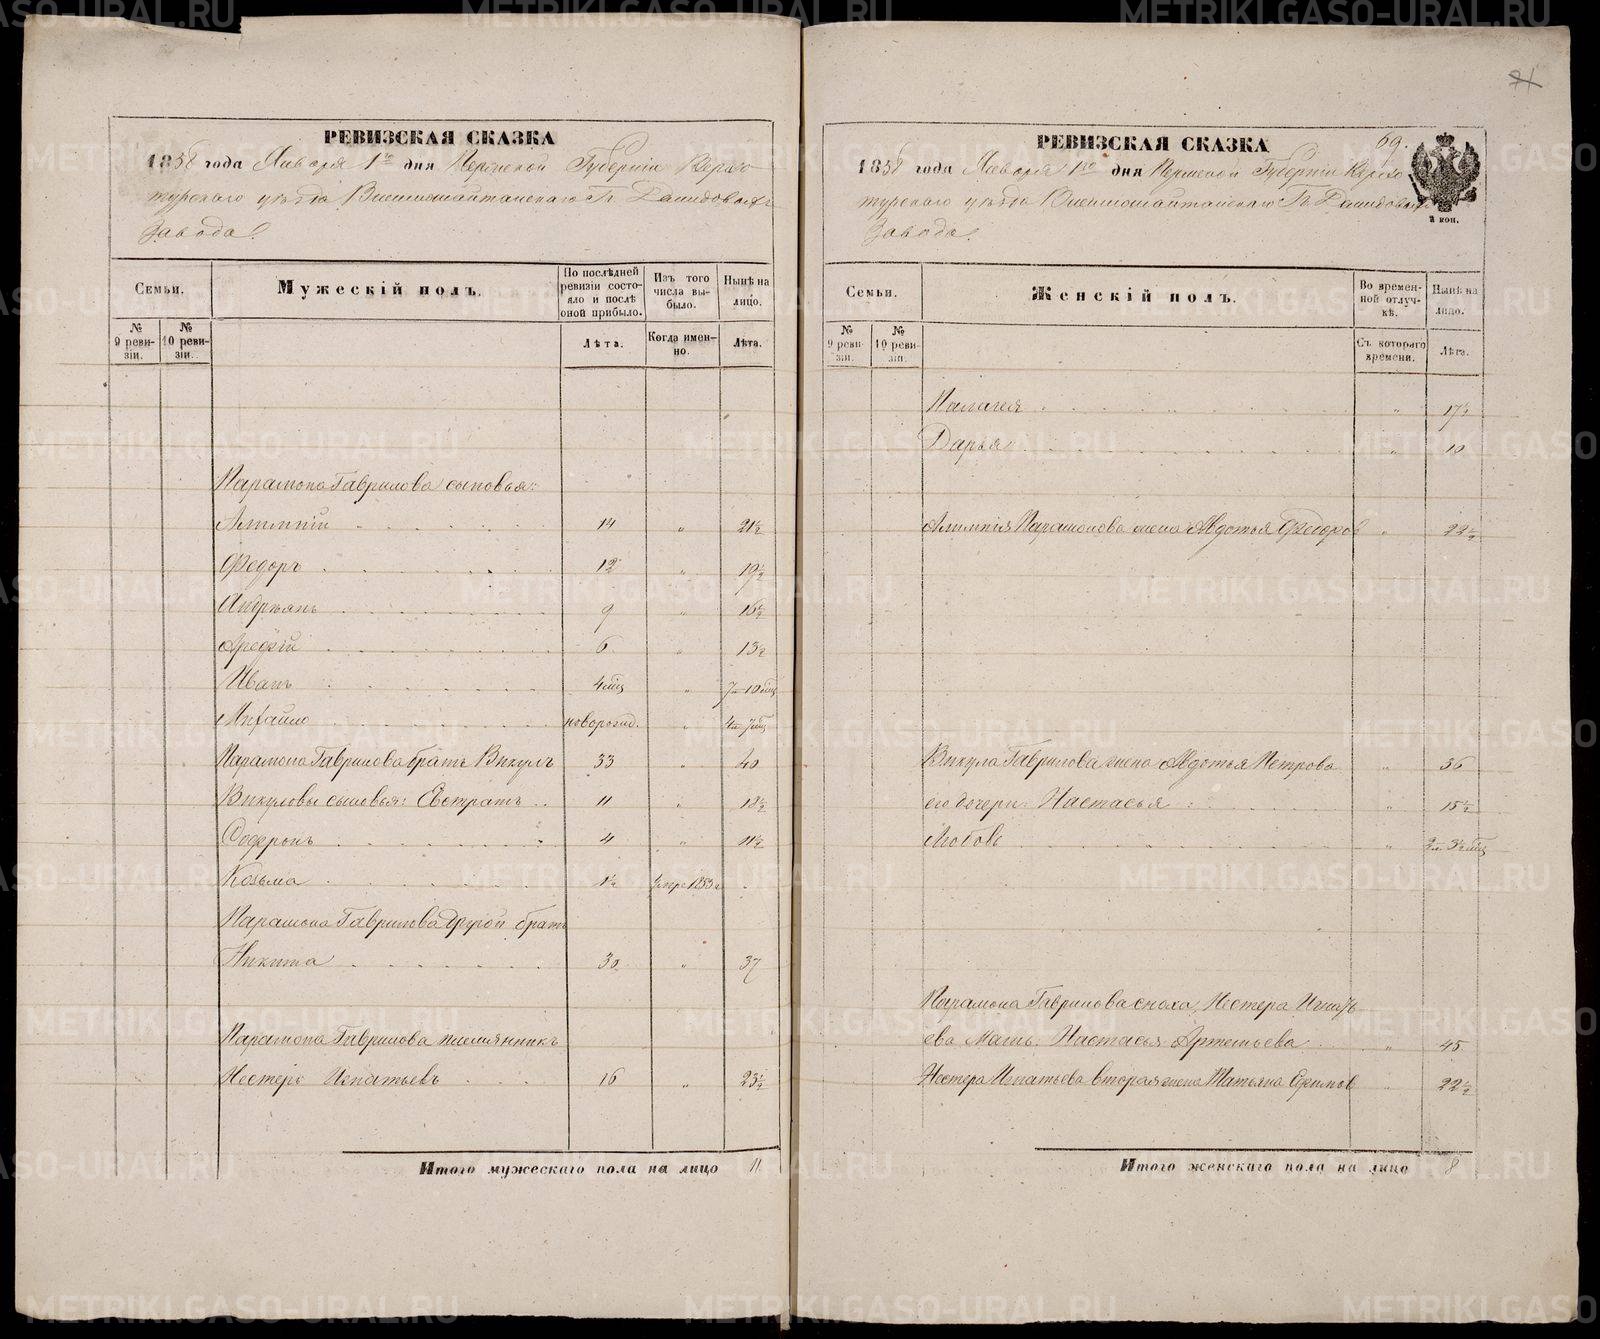 71
РЕВИЗСКАЯ СКАЗКА
1858 года Января 1го дня Пермской Губерніи Верхо-
турскаго уѣзда Висимошайтанскаго Гг Демидовыхъ
Завода.
Семьи.
Мужескій полъ.
По послѣдней ревизіи состо- яло и послѣ оной прибыло.
Изъ того числа вы- было.
Нынѣ на лицо.
№ 9 реви- зіи.
№ 10 реви- зіи.
Лѣта.
Когда имен- но.
Лѣта.
Парамона Гаврилова сыновья:
Алимпій 14 " 21½
Федоръ 12 " 19½
Андреянъ 9 " 16½
Арефій 6 " 13½
Иванъ 4 мѣц " 7 л 10 мѣц
Михайло новорожд. " 4 л 7 мѣц
Парамона Гаврилова братъ Викулъ 33 " 40
Викуловы сыновья: Евстратъ 11 " 18½
Софронъ 4 " 11½
Козьма 1½ умеръ 1853 г
Парамона Гаврилова другой братъ
Никита 30 " 37
Парамона Гаврилова племянникъ
Нестеръ Игнатьевъ 16 " 23½
Итого мужескаго пола на лицо 11
РЕВИЗСКАЯ СКАЗКА
69.
1858 года Января 1го дня Пермской Губерніи Верхо
турскаго уѣзда Висимошайтанскаго Гг Демидовыхъ
Завода.
2 коп.
Семьи.
Женскій полъ.
Во времен- ной отлуч- кѣ.
Нынѣ на лицо.
№ 9 реви- зіи.
№ 10 реви- зіи.
Съ котораго времени.
Лѣта.
Палагея " 17½
Дарья " 10
Алимпія Парамонова жена Авдотья Федоров " 22½
Викула Гаврилова жена Авдотья Петрова " 36
его дочери: Настасья " 15½
Любовь " 2 л 3½ мѣц
Парамона Гаврилова сноха, Нестера Игнать-
ева Мать. Настасья Артемьева " 45
Нестера Игнатьева вторая жена Татьяна Ефимов " 22½
Итого женскаго пола на лицо 8
METRIKI.GASO-URAL.RU